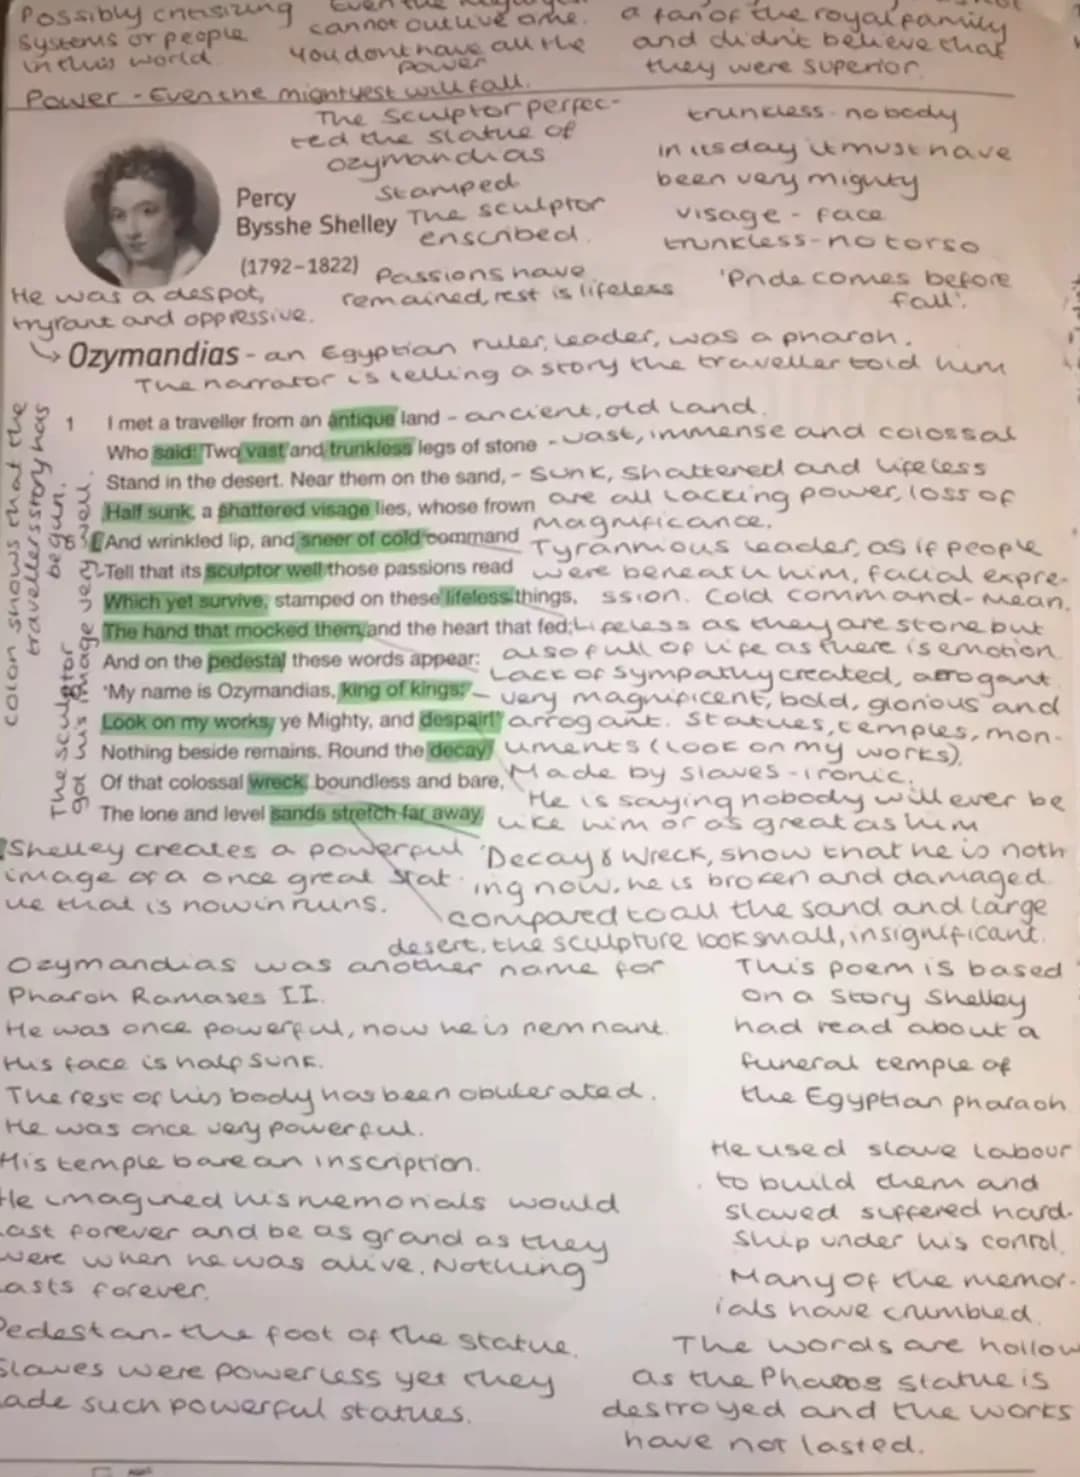 Possibly critisizing
systems or people
in this world
Even the
cannot outlive time.
You dont have all the
power
a fan of the royal family
and didn't believe that
they were superior.
Power - Even the mightyest will fall.
The sculptor perfec-
ted the statue of
ozymandias
Stamped
The sculptor
enscribed.
Passions have
remained, rest is lifeless
trunkless - no body
in its day it must have
been very mighty
visage - face
trunkless - no torso
'Pride comes before
fall'.
Percy
Bysshe Shelley
(1792–1822)
He was a despot,
tryrant and oppressive.
Ozymandias - an Egyptian ruler, leader, was a pharoh.
The narrator is telling a story the traveller told him
colon shows that the
travellers story has
begun.
The sculptor
got his image very well.
1 I met a traveller from an antique land - ancient, old land.
Who said: 'Two vast and trunkless legs of stone - vast, immense and colossal
Stand in the desert. Near them on the sand, - Sunk, shattered and lifeless
Half sunk, a shattered visage lies, whose frown are all lacking power, loss of
magnificance.
5 And wrinkled lip, and sneer of cold command Tyrannious leader, as if people
Tell that its sculptor well those passions read were beneath him, facial expre-
Which yet survive, stamped on these lifeless things, ssion. Cold command - mean.
The hand that mocked them, and the heart that fed; Lifeless as they are stone but
also full of life as there is emotion
And on the pedestal these words appear: Lack of sympathy created, arrogant.
'My name is Ozymandias, king of kings; - very magnificent, bold, glorious and
Look on my works, ye Mighty, and despair!' arrogant. Statues, temples, mon-
Nothing beside remains. Round the decay uments (look on my works),
Of that colossal wreck, boundless and bare, Made by slaves - ironic.
He is saying nobody will ever be
The lone and level sands stretch far away. like him or as great as him
Shelley creates a powerful
image of a once great stat
ue that is now in ruins.
'Decay & Wreck, show that he is noth
ing now, he is broken and damaged.
compared to all the sand and large
desert, the sculpture look small, insignificant.
Ozymandias was another name for
Pharoh Ramases II.
He was once powerful, now he is remnant.
His face is half sunk.
The rest of his body has been obliterated.
He was once very powerful.
His temple bare an inscription.
He imagined his memorials would
last forever and be as grand as they
were when he was alive. Nothing
lasts forever.
Pedestan - the foot of the statue.
Slaves were powerless yet they
ade such powerful statues.
This poem is based
on a story Shelley
had read about a
funeral temple of
the Egyptian pharaoh
He used slave labour
to build them and
slaved suffered hard-
ship under his conrol.
Many of the memor-
ials have crumbled.
The words are hollow
as the Pharoos statue is
destroyed and the works
have not lasted.